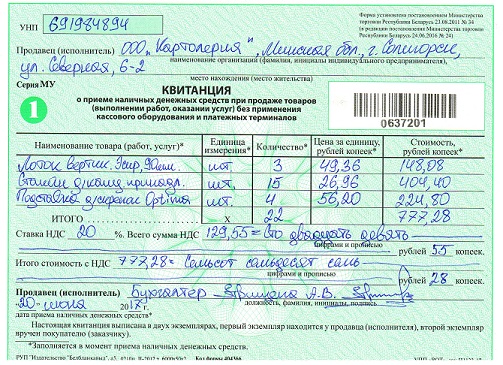 УНП 691984894
Форма установлена постановлением Министерства торговли Республики Беларусь 23.08.2011 № 34
(в редакции постановления Министерства торговли Республики Беларусь 24.06.2016 № 24)
Продавец (исполнитель) ООО „Картолерия", Минская обл, г. Солигорск,
наименование организации (фамилия, инициалы индивидуального предпринимателя),
ул. Северная, 6-2
место нахождения (место жительства)
Серия МУ
1
КВИТАНЦИЯ
о приеме наличных денежных средств при продаже товаров
(выполнении работ, оказании услуг) без применения
кассового оборудования и платежных терминалов
0637201
Наименование товара (работ, услуг)* Единица измерения* Количество* Цена за единицу, рублей копеек* Стоимость, рублей копеек*
Лоток вертик. 90мм шт. 3 49,36 148,08
шт. 15 26,96 404,40
Подставка Optima шт. 4 56,20 224,80
ИТОГО X 22 777,28
Ставка НДС 20 %. Всего сумма НДС 129,55 = Сто двадцать девять
цифрами и прописью
рублей 55 копеек.
Итого стоимость с НДС 777,28 = Семьсот семьдесят семь
цифрами и прописью
рублей 28 копеек.
Продавец (исполнитель) Бухгалтер А.В.
должность, фамилия, инициалы, подпись
20 июня 2017 г.
дата приема наличных денежных средств*
Настоящая квитанция выписана в двух экземплярах, первый экземпляр находится у продавца (исполнителя), второй экземпляр
вручен покупателю (заказчику).
*Заполняется в момент приема наличных денежных средств.